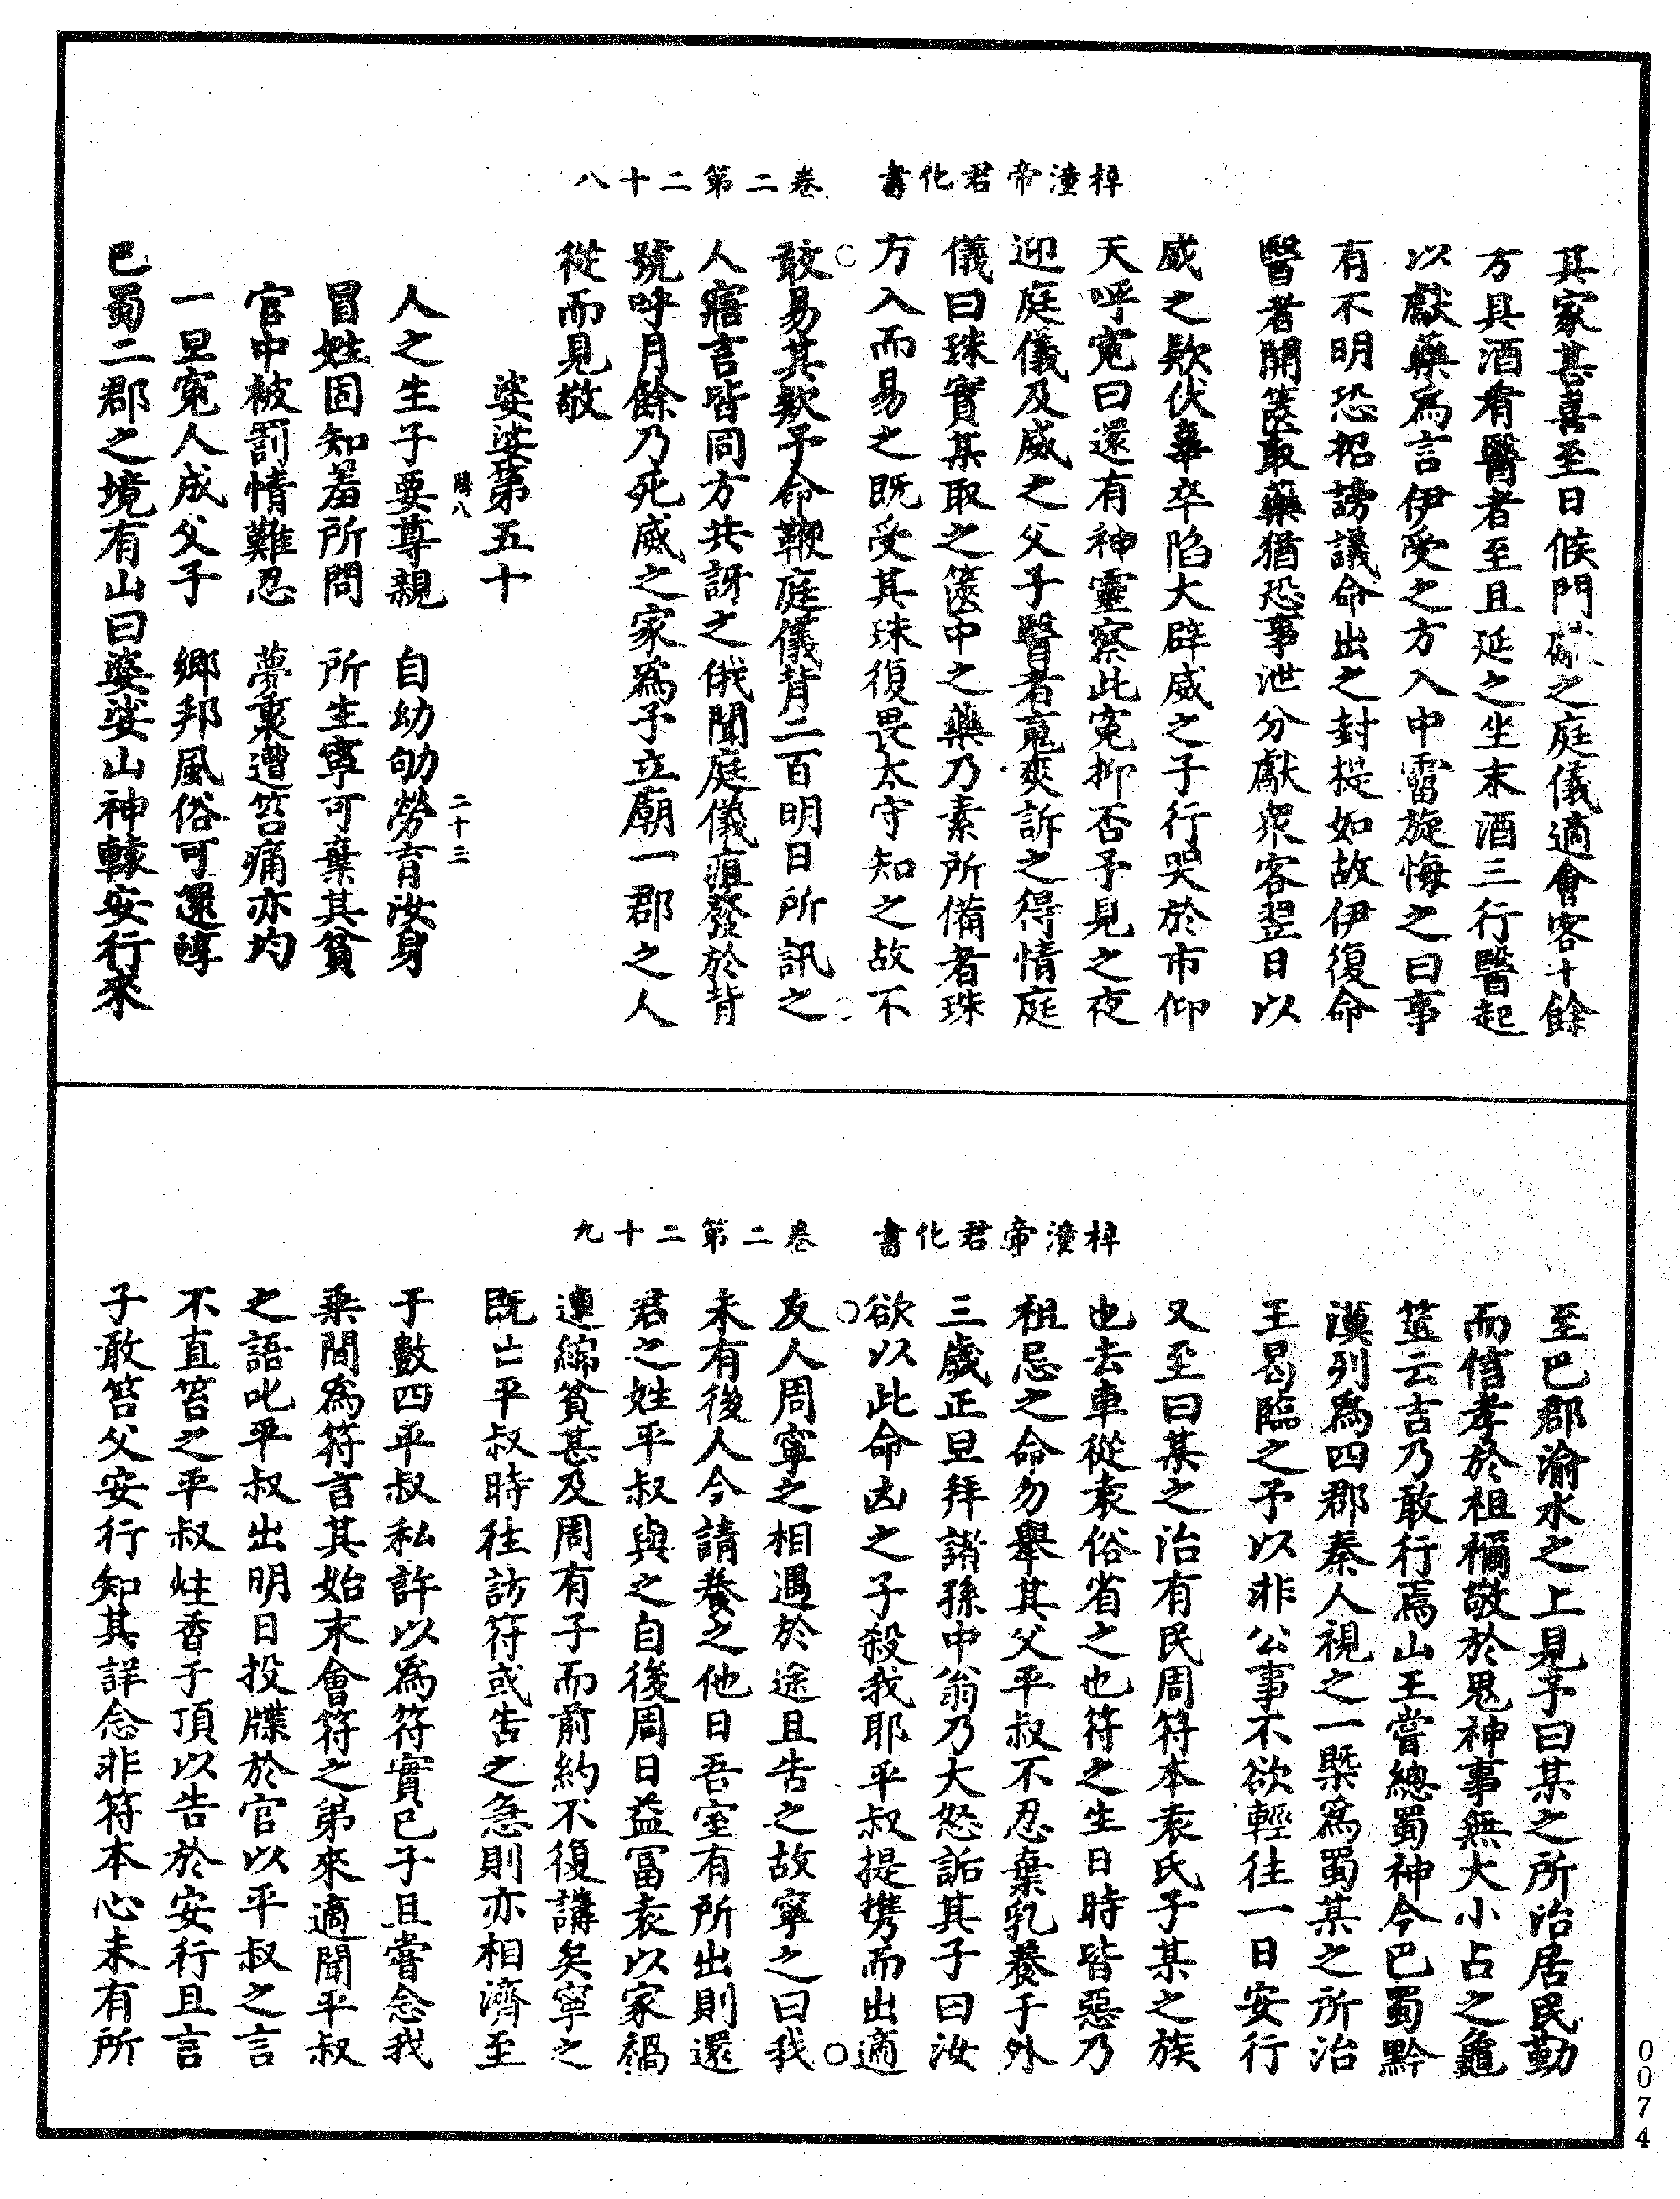 梓潼帝君化書　卷二第二十八
其家甚喜至日候門礙之庭儀適會客十餘
方具酒肴醫者至且延之坐末酒三行醫起
以獻藥爲言伊受之方入中霤旋悔之曰事
有不明恐招謗議命出之封提如故伊復命
醫者開篋取藥猶恐事泄分獻衆客翌日以
威之欵伏辜卒陷大辟威之子行哭於市仰
天呼寃曰還有神靈察此寃抑否予見之夜
迎庭儀及威之父子醫者䰟爽訴之得情庭
儀曰珠實某取之篋中之藥乃素所備者珠
方入而易之既受其珠復畏太守知之故不
敢易其欵予命鞭庭儀背二百明日所訊之
人寤言皆同方共訝之俄聞庭儀疽發於背
號呼月餘乃死威之家爲予立廟一郡之人
從而見敬
婆娑第五十
人之生子要尊親　自幼劬勞育汝身
冒姓固知羞所問　所生寧可棄其貧
官中被罰情難忍　夢裏遭笞痛亦均
一旦寃人成父子　鄉邦風俗可還淳
巴蜀二郡之境有山曰婆娑山神轅安行來
騰八
二十三
梓潼帝君化書　卷二第二十九
至巴郡渝水之上見予曰某之所治居民勤
而信孝於祖禰敬於鬼神事無大小占之龜
筮云吉乃敢行焉山王嘗總蜀神今巴蜀黔
漢列爲四郡秦人視之一槩爲蜀某之所治
王曷臨之予以非公事不欲輕往一日安行
又至曰某之治有民周符本袁氏子某之族
也去車從袁俗省之也符之生日時皆惡乃
祖忌之命勿舉其父平叔不忍棄乳養于外
三歲正旦拜諸孫中翁乃大怒詬其子曰汝
欲以此命凶之子殺我耶平叔提携而出適
友人周寧之相遇於途且告之故寧之曰我
未有後人今請養之他日吾室有所出則還
君之姓平叔與之自後周日益冨袁以家禍
連綿貧甚及周有子而前約不復講矣寧之
既亡平叔時往訪符或告之急則亦相濟至
于數四平叔私許以爲符實已子且嘗念我
乘間爲符言其始末會符之弟來適聞平叔
之語叱平叔出明日投牒於官以平叔之言
不直笞之平叔炷香于頂以告於安行且言
子敢笞父安行知其詳念非符本心未有所
0074